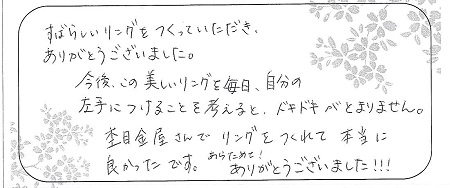 すばらしいリングをつくっていただき、
ありがとうございました。
今後、この美しいリングを毎日、自分の
左手につけることを考えると、ドキドキがとまりません。
杢目金屋さんでリングをつくれて本当に
良かったです。あらためて!ありがとうございました!!!